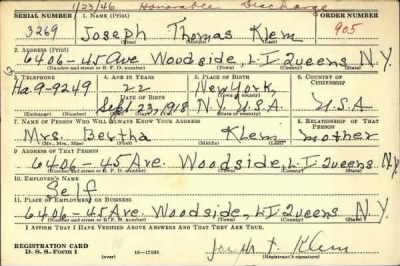 1/23/46 Honorable Discharge
SERIAL NUMBER 1. NAME (Print) ORDER NUMBER
3269 Joseph Thomas Klem 905
(First) (Middle) (Last)
2. ADDRESS (Print)
6406-45 Ave Woodside, L.I. Queens N.Y.
(Number and street or R. F. D. number) (Town) (County) (State)
3. TELEPHONE 4. AGE IN YEARS 5. PLACE OF BIRTH 6. COUNTRY OF CITIZENSHIP
Ha. 9-9249 22 New York,
DATE OF BIRTH (Town or county)
Sept. 23, 1918 N.Y. U.S.A. U.S.A
(Exchange) (Number) (Mo.) (Day) (Yr.) (State or country)
7. NAME OF PERSON WHO WILL ALWAYS KNOW YOUR ADDRESS 8. RELATIONSHIP OF THAT PERSON
Mrs. Bertha Klem mother
(Mr., Mrs., Miss) (First) (Middle) (Last)
9. ADDRESS OF THAT PERSON
6406-45 Ave. Woodside, L.I. Queens N.Y.
(Number and street or R. F. D. number) (Town) (County) (State)
10. EMPLOYER'S NAME
Self
11. PLACE OF EMPLOYMENT OR BUSINESS
6406-45 Ave. Woodside, L.I. Queens N.Y.
(Number and street or R. F. D. number) (Town) (County) (State)
I AFFIRM THAT I HAVE VERIFIED ABOVE ANSWERS AND THAT THEY ARE TRUE.
REGISTRATION CARD
D. S. S. Form 1 (over) 16-17105 Joseph T. Klem
(Registrant's signature)